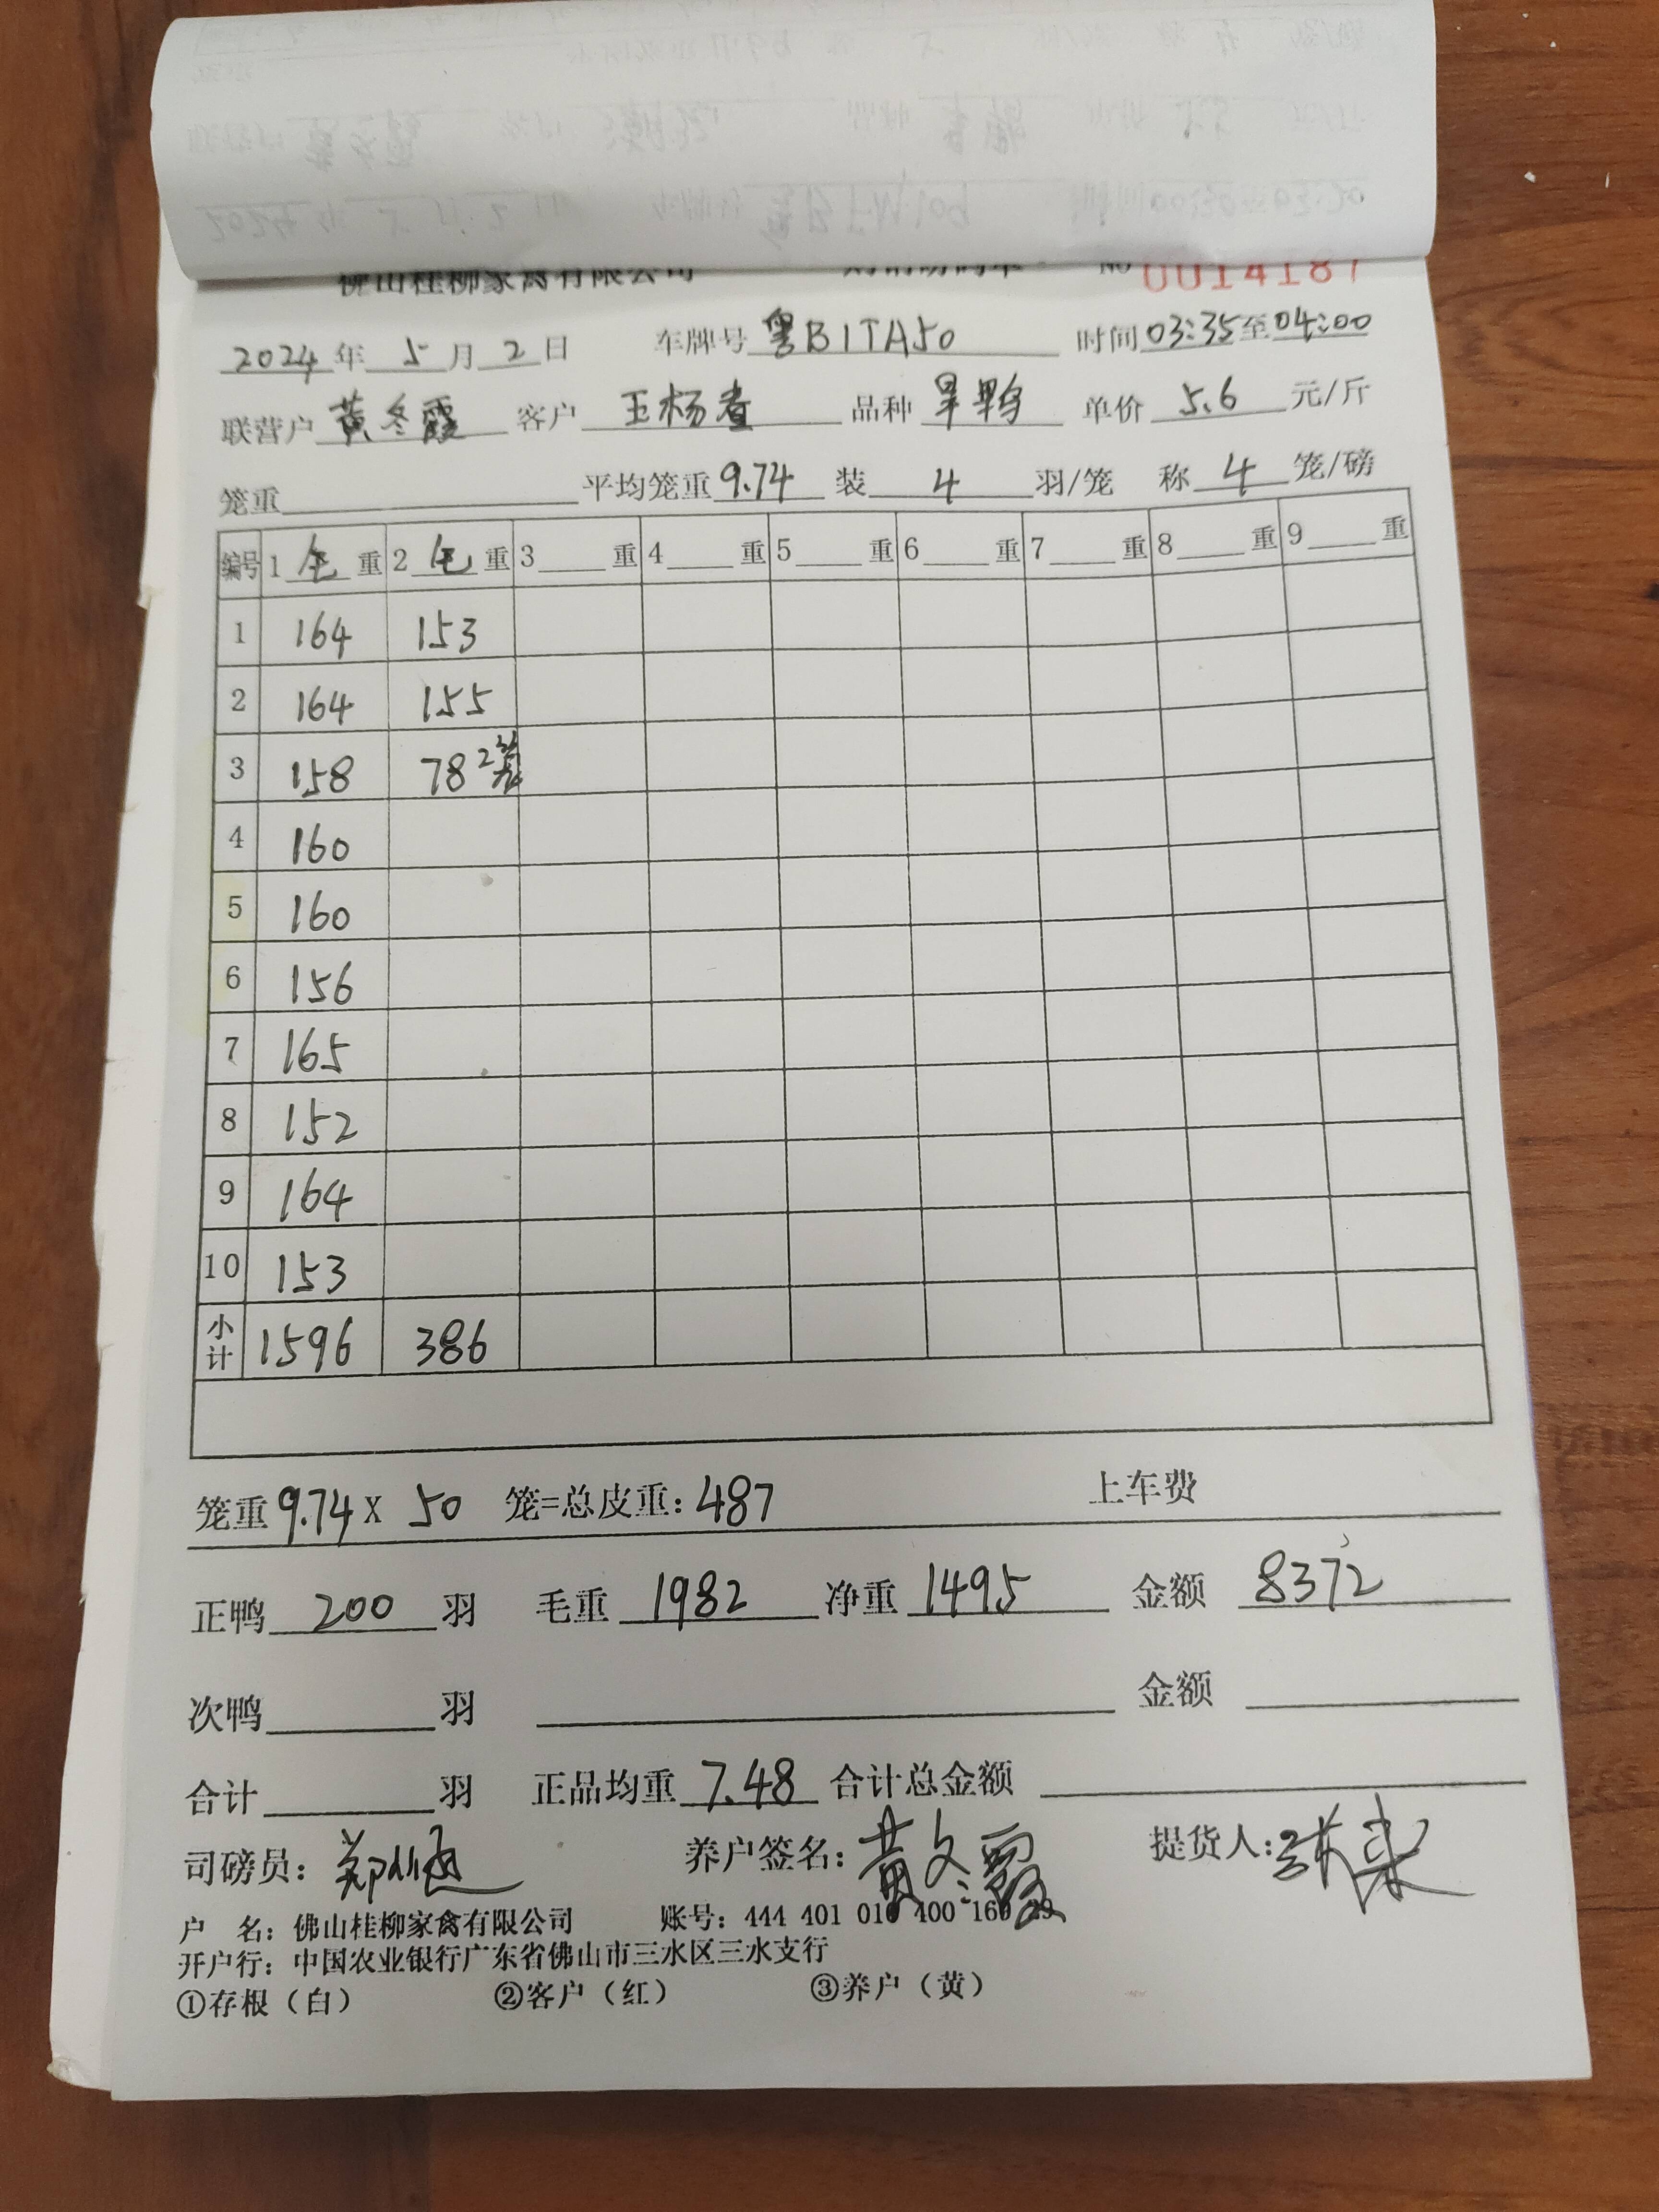 佛山桂柳家禽有限公司 No 0014187
2024年5月2日 车牌号 粤B1TA50 时间 03:35至04:00
联营户 黄冬霞 客户 王杨 品种 旱鸭 单价 5.6 元/斤
笼重 平均笼重 9.74 装 4 羽/笼 称 4 笼/磅
编号 1 毛 重 2 毛 重 3 重 4 重 5 重 6 重 7 重 8 重 9 重
1 164 153
2 164 155
3 158 78 2笼
4 160
5 160
6 156
7 165
8 152
9 164
10 153
小计 1596 386
笼重 9.74 X 50 笼=总皮重: 487 上车费
正鸭 200 羽 毛重 1982 净重 1495 金额 8372
次鸭 羽 金额
合计 羽 正品均重 7.48 合计总金额
司磅员: 养户签名: 黄冬霞 提货人:
户 名: 佛山桂柳家禽有限公司 账号: 444 401 010 400 160 29
开户行: 中国农业银行广东省佛山市三水区三水支行
①存根（白） ②客户（红） ③养户（黄）